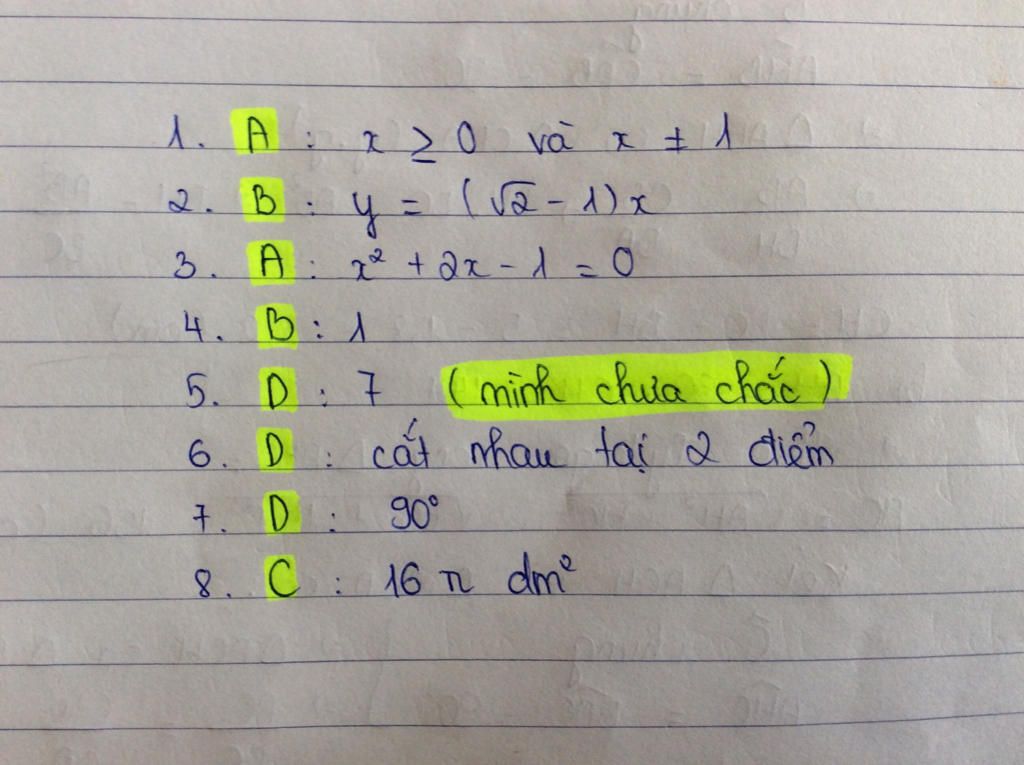 1. A : x ≥ 0 và x ≠ 1
2. B : y = (√2 - 1)x
3. A : x² + 2x - 1 = 0
4. B : 1
5. D : 7 (mình chưa chắc)
6. D : cắt nhau tại 2 điểm
7. D : 90°
8. C : 16 π dm²